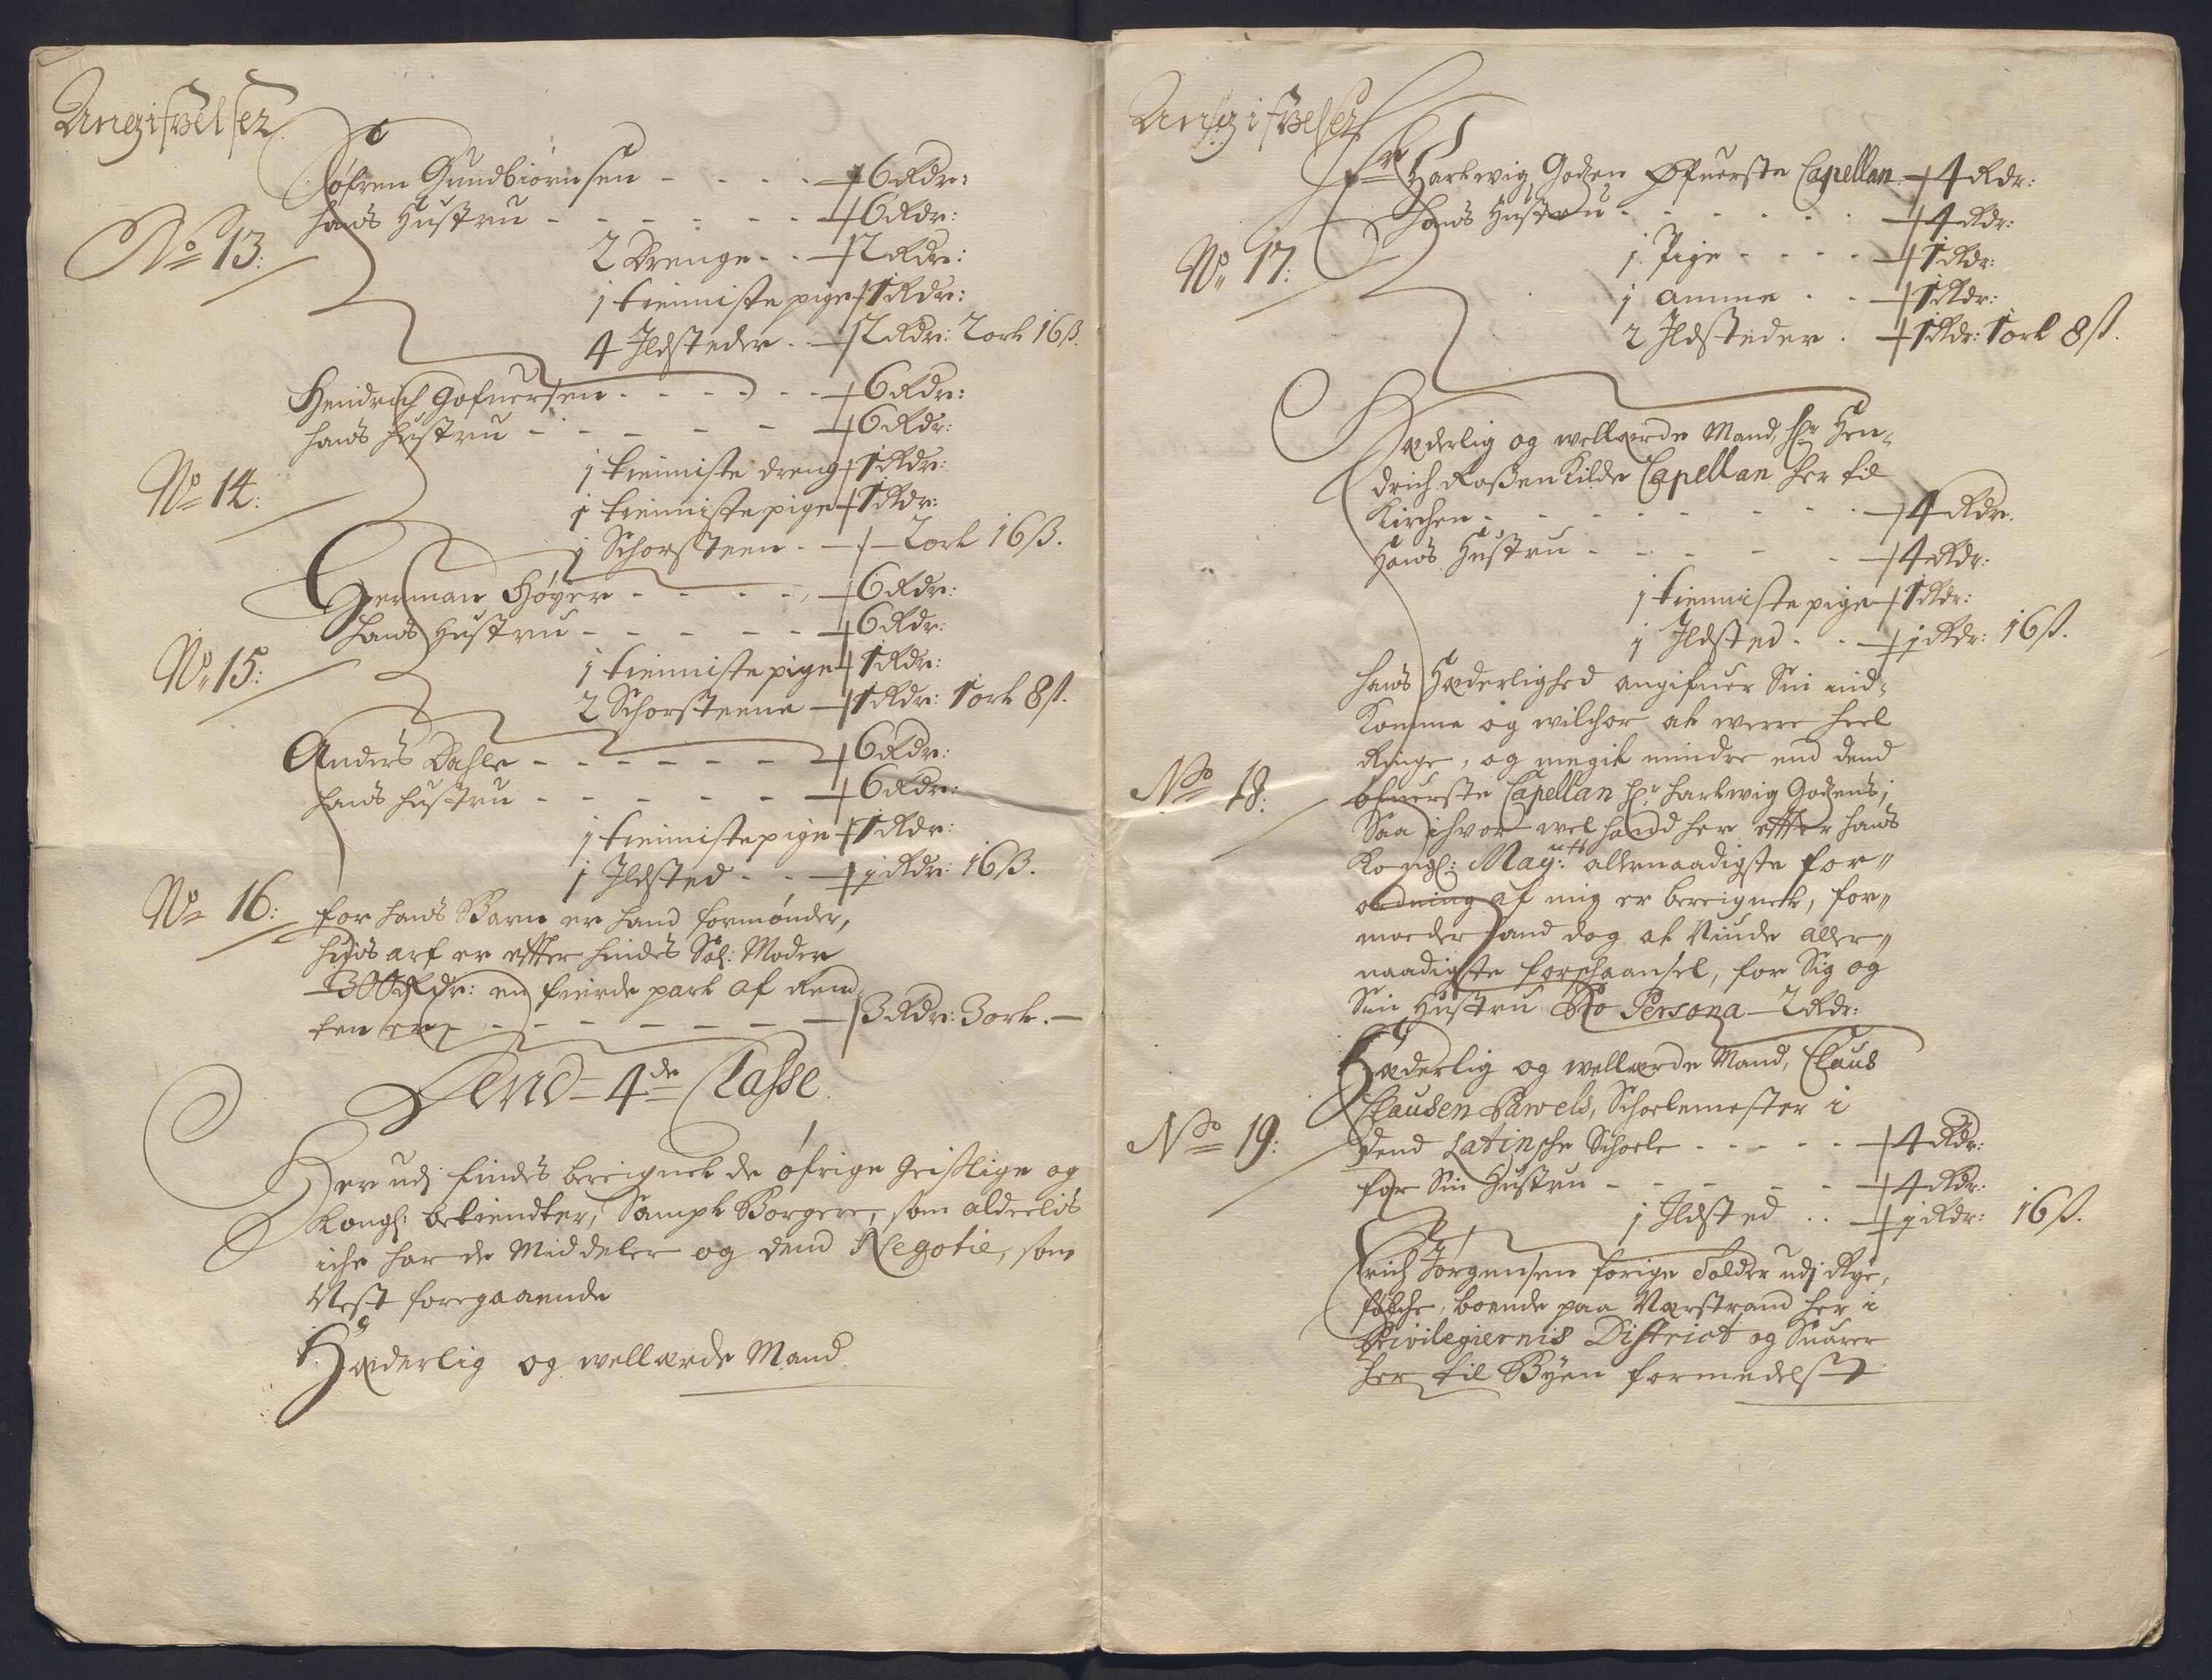 Angifvelser
Søfren Gundbiørnsen - - - - 6 Rdr:
hans Hustru - - - - - - - 6 Rdr:
No 13:
2 Drenge - - 2 Rdr:
1 tienniste pige 1 Rdr:
4 Ildsteder - - 2 Rdr: 2 ort 16 ß.
Hendrich Gofuersen - - - - - 6 Rdr:
hans hustru - - - - - 6 Rdr:
1 tienniste dreng 1 Rdr:
No 14:
1 tienniste pige 1 Rdr:
1 Schorsteen - - 2 ort 16 ß.
Herman Høyer - - - - - 6 Rdr:
hans Hustru - - - - - 6 Rdr:
No 15:
1 tienniste pige 1 Rdr:
2 Schorsteene 1 Rdr: 1 ort 8 ß.
Anders Dahle - - - - - - 6 Rdr:
hans hustru - - - - - 6 Rdr:
1 tiennistepige 1 Rdr:
1 Ildsted - - - 1 Rdr: 16 ß.
No 16:
for hans Barn er hand formønder,
huis arf er efter hindes Sal: Moder
300 Rdr: en fierde part af Ren-
ten er - - - - - - - 3 Rdr: 3 ort. -
Dend 4de Classe
Her udj findes bereignet de øfrige Geistlige og
Kongl: betiendter, Sampt Borgere, som alderlis
iche har de Middeler og dend Negotie, som
Nest foregaaende
Hæderlig og wellærde Mand
Angifvelser
Hr Hartwig Gotzen Øfuerste Capellan 4 Rdr:
hans Hustru - - - - - - 4 Rdr:
No 17:
1 Pige - - - - 1 Rdr:
1 Amme - - 1 Rdr:
2 Ildsteder - 1 Rdr: 1 ort 8 ß.
Hæderlig og wellærde Mand, Hr Hen-
drich Roßenkilde Capellan her til
Kirchen - - - - - - - 4 Rdr.
Hans Hustru - - - - - 4 Rdr:
1 tienniste pige 1 Rdr:
1 Ildsted - - - 1 Rdr: 16 ß.
hans Hæderlighed angifuer Sin ind-
Komme og wilchor at were heel
Ringe, og megit mindre end dend
No 18:
øfuerste Capellan Hr: Hartwig Gotzens;
Saa ihvor wel hand her effter hans
Kongl: Mayts: allernaadigste for-
ordning af mig er bereignet, for-
moder hand dog at Niude aller-
naadigste forschaansel, for Sig og
Sin Hustru Pro Persona - 2 Rdr:
Hæderlig og wellærde Mand, Claus
Clausen Pawels, Scholemester i
No 19:
dend Latinsche Schoele - - - - - 4 Rdr:
for Sin Hustru - - - - - 4 Rdr:
1 Ildsted - - 1 Rdr: 16 ß.
Erich Jørgensen forige Tolder udj Rye,
fölche, boende paa Warstrand her i
Privilegiernis District og Suarer
her til Byen formedelst